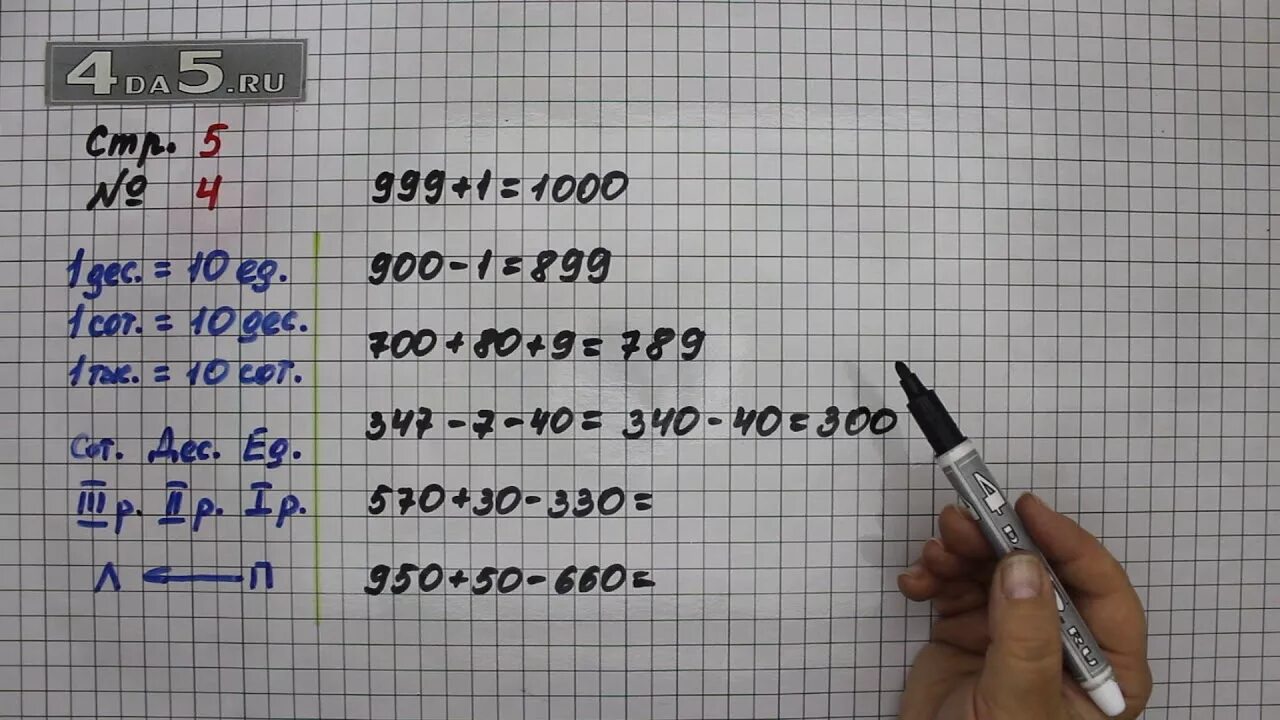 4DA5.RU
Стр. 5
№ 4
1 дес. = 10 ед.
1 сот. = 10 дес.
1 тыс. = 10 сот.
Сот. Дес. Ед.
III р. II р. I р.
Л ← П
999+1=1000
900-1=899
700+80+9=789
347-7-40= 340-40=300
570+30-330=
950+50-660=